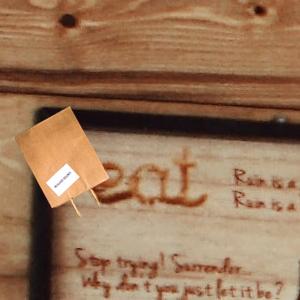 eat
Rain is a
Rain is a
Stop trying! Surrender...
Why don't you just let it be?